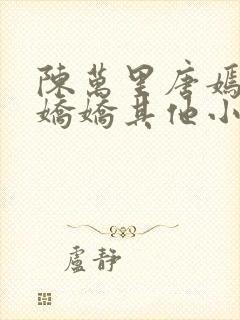 陳萬里唐嫣
嬌嬌其他小
盧靜